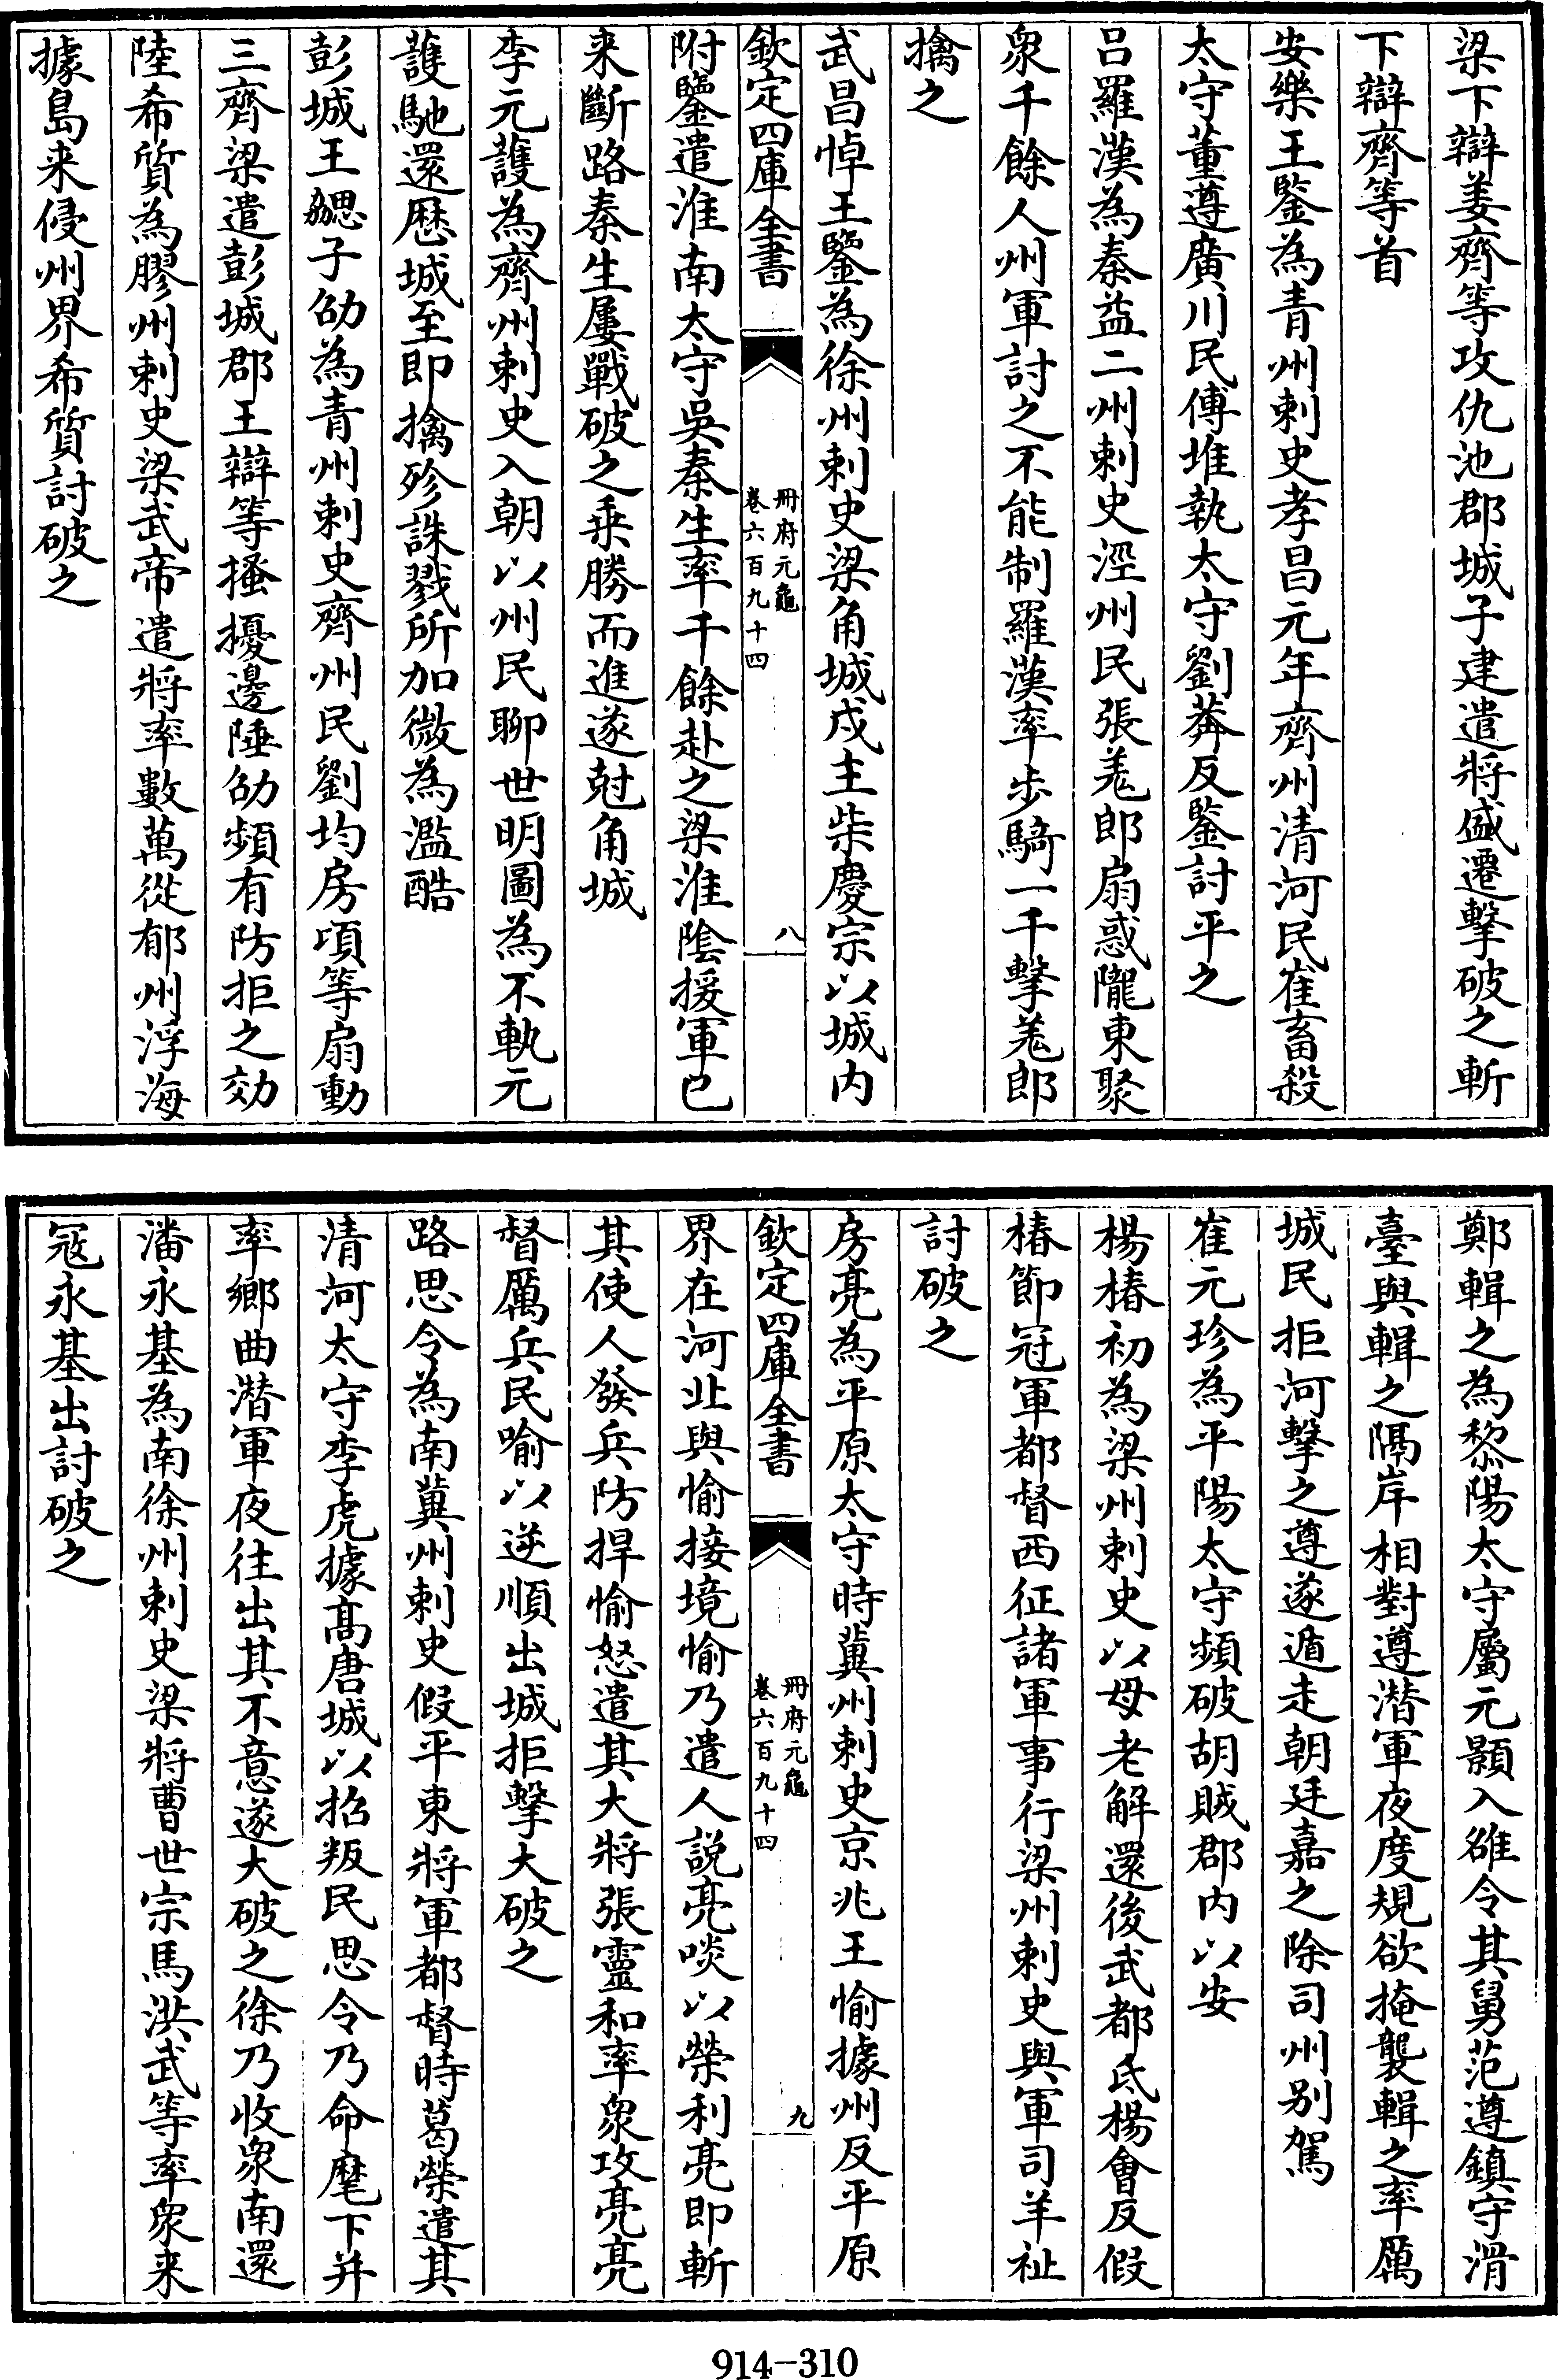 梁下辯姜齊等攻仇池郡城子建遣將盛遷擊破之斬
下辯齊等首
安樂王鑒為青州刺史孝昌元年齊州清河民崔畜殺
太守董遵廣川民傅堆執太守劉莽反鑒討平之
吕羅漢為秦益二州刺史涇州民張羌郎扇惑隴東聚
衆千餘人州軍討之不能制羅漢率步騎一千擊羌郎
擒之
武昌悼王鑒為徐州刺史梁角城戍主柴慶宗以城内
欽定四庫全書
冊府元龜
卷六百九十四
八
附鑒遣淮南太守吳秦生率千餘赴之梁淮陰援軍已
来斷路秦生屢戰破之乗勝而進遂尅角城
李元護為齊州刺史入朝以州民聊世明圖為不軌元
護馳還厯城至即擒殄誅戮所加微為濫酷
彭城王勰子劭為青州刺史齊州民劉均房頃等扇動
三齊梁遣彭城郡王辯等搔擾邊陲劭頻有防拒之効
陸希質為膠州刺史梁武帝遣將率數萬從郁州浮海
據島来侵州界希質討破之
鄭輯之為黎陽太守屬元顥入雒令其舅范遵鎮守滑
臺與輯之隔岸相對遵潛軍夜度規欲掩襲輯之率厲
城民拒河擊之遵遂遁走朝廷嘉之除司州别駕
崔元珍為平陽太守頻破胡賊郡内以安
楊椿初為梁州刺史以母老解還後武都氐楊會反假
椿節冠軍都督西征諸軍事行梁州刺史與軍司羊祉
討破之
房亮為平原太守時冀州刺史京兆王愉據州反平原
欽定四庫全書
冊府元龜
卷六百九十四
九
界在河北與愉接境愉乃遣人説亮啖以榮利亮即斬
其使人發兵防捍愉怒遣其大將張靈和率衆攻亮亮
督厲兵民喻以逆順出城拒擊大破之
路思令為南冀州刺史假平東將軍都督時葛榮遣其
清河太守李虎據髙唐城以招叛民思令乃命麾下并
率鄉曲潛軍夜往出其不意遂大破之徐乃收衆南還
潘永基為南徐州刺史梁將曹世宗馬洪武等率衆来
冦永基出討破之
914-310